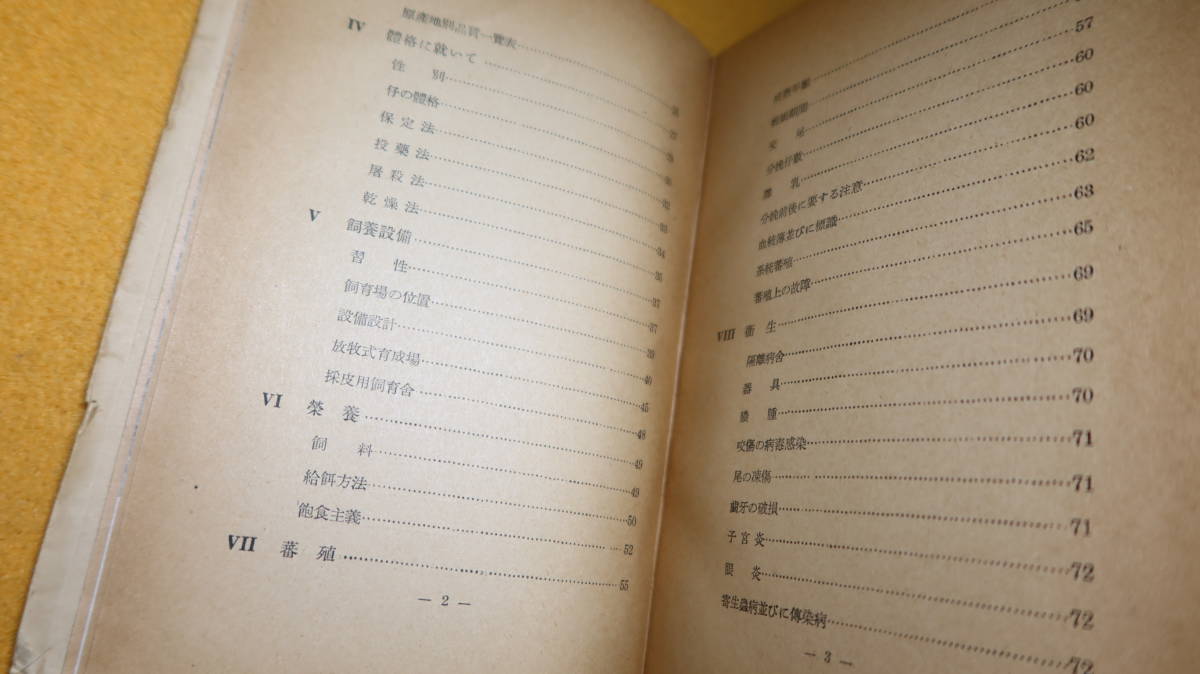 原産地別品質一覽表……
IV 體格に就いて……
性別……
仔の體格……
保定法……32
投藥法……33
屠殺法……34
乾燥法……35
V 飼養設備……37
習性……37
飼育場の位置……39
設備設計……40
放牧式育成場……45
採皮用飼育舍……48
VI 榮養……49
飼料……49
給餌方法……50
飽食主義……52
VII 蕃殖……55
— 2 —
妊娠期間……
交尾……57
分娩仔數……60
離乳……60
分娩前後に要する注意……60
血統簿並びに標識……62
系統蕃殖……63
蕃殖上の故障……65
VIII 衛生……69
隔離病舍……69
器具……70
膿腫……70
咬傷の病毒感染……71
尾の凍傷……71
齒牙の破損……71
子宮炎……72
眼炎……72
寄生蟲病並びに傳染病……72
— 3 —